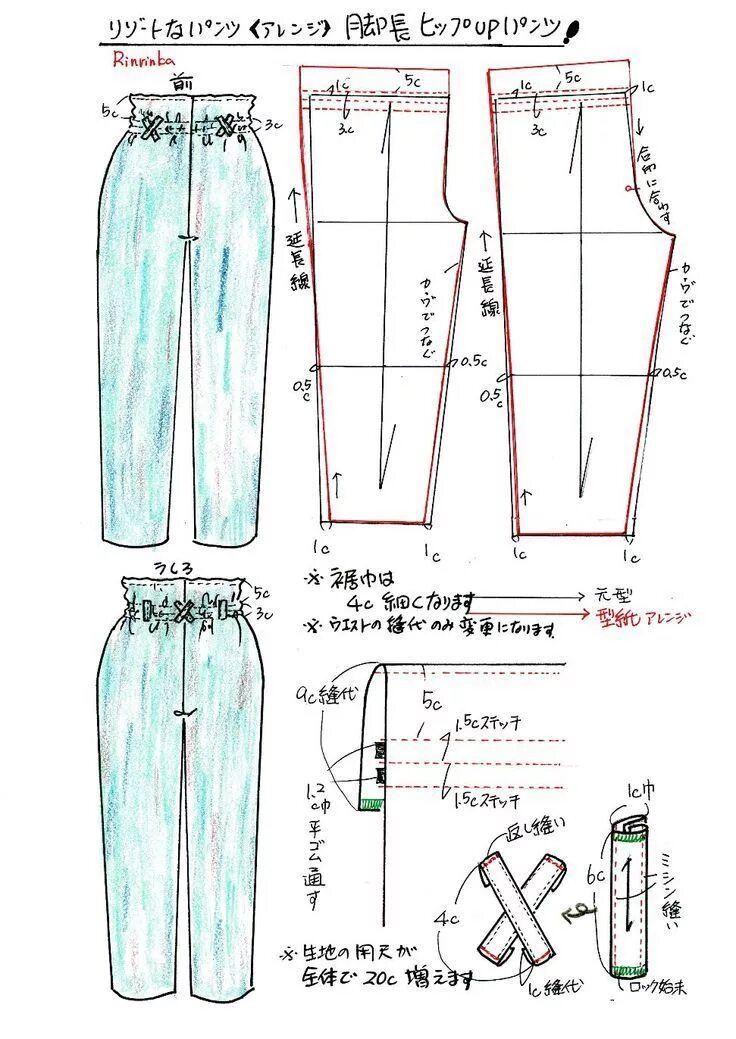 リゾートなパンツ《アレンジ》 月却長 ヒップUPパンツ!
Rinrinba
前
5c
3c
1c
5c
3c
↑延長線
カーヴでつなぐ
0.5c
0.5c
1c
1c
5c
1c
3c
↓合印に合わす
↑延長線
カーヴでつなぐ
0.5c
0.5c
1c
1c
うしろ
5c
3c
※裾巾は
4c 細くなります
※ウエストの縫代のみ変更になります
元型
型紙アレンジ
9c縫代
5c
1.5cステッチ
1.5cステッチ
1.2c巾平ゴム通す
返し縫い
4c
1c縫代
1c巾
6c
ミシン縫い
ロック始末
※生地の用尺が
全体で20c増えます